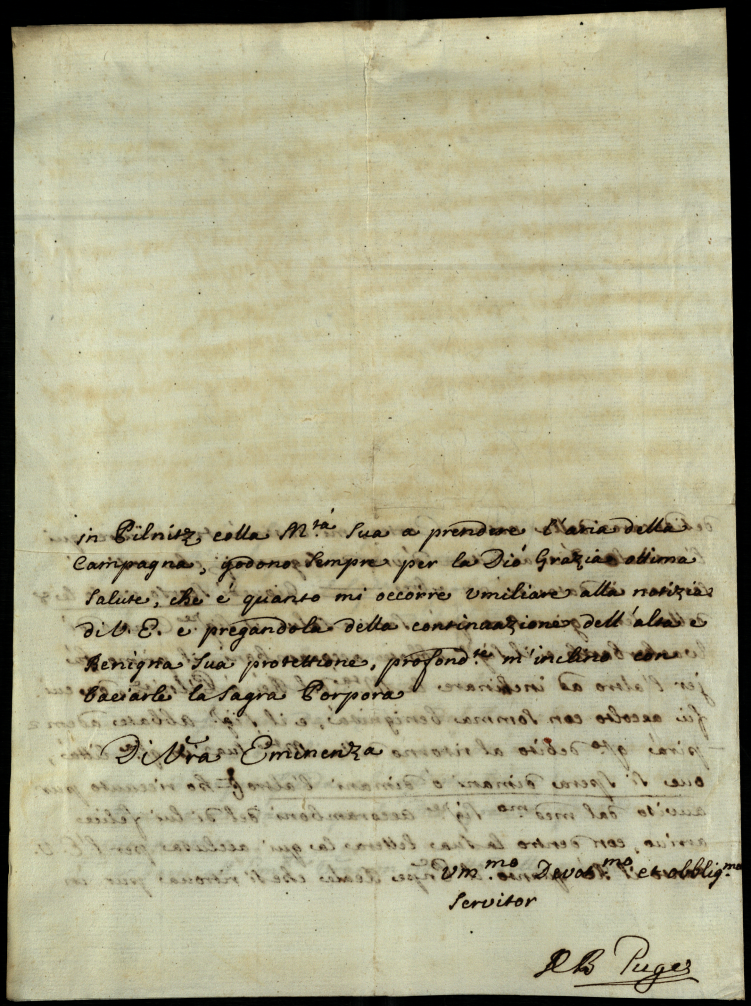 in Pilnitz colla M.tà Sua a prendere l'aria della
Campagna, godono sempre per la Dio Grazia ottima
salute, che è quanto mi occorre umiliare alla notizia
di V. E. e pregandola della continuazione dell'alta e
Benigna Sua protettione, profond.te m'inclino con
baciarle la Sagra Porpora
Di Vra Eminenza
Vm.mo Devot.mo et obblig.mo
Servitor
B Puger